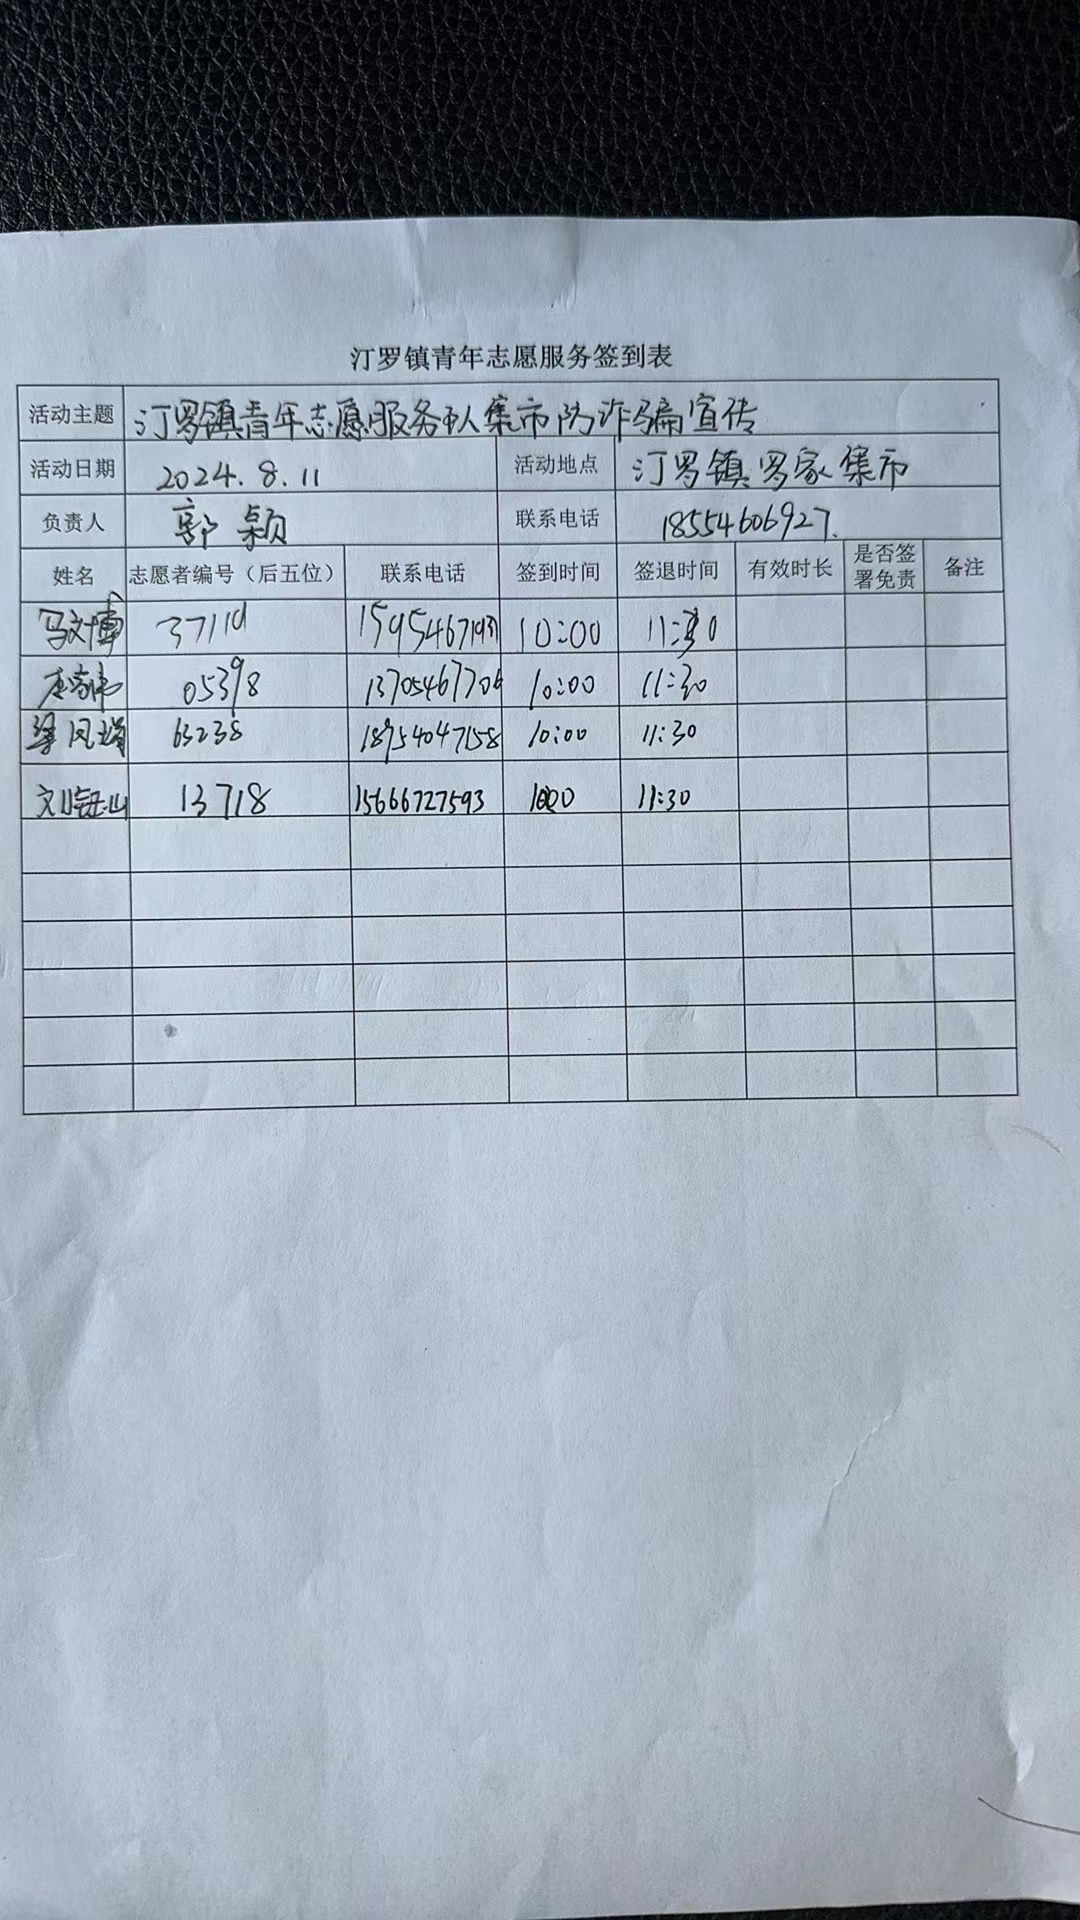 汀罗镇青年志愿服务签到表
活动主题 汀罗镇青年志愿服务队集市防诈骗宣传
活动日期 2024.8.11 活动地点 汀罗镇罗家集市
负责人 郭颖 联系电话 18554606927.
姓名 志愿者编号（后五位） 联系电话 签到时间 签退时间 有效时长 是否签署免责 备注
马文博 10:00 11:30
05398 13705467706 10:00 11:30
梁凤瑞 63238 18954047158 10:00 11:30
刘钰山 13718 15666727593 11:30